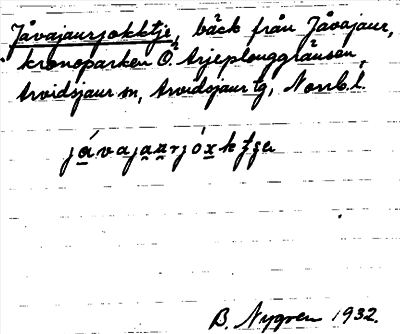 Jåvajaurjokktje, bäck från Jåvajaur,
kronoparken Ö. Arjeplouggränsen,
Arvidsjaur sn, Arvidsjaur tg, Norrb. l.
B. Nygren 1932.